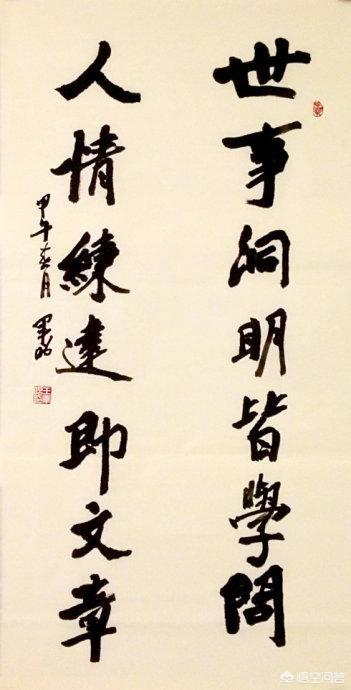 世事洞明皆學問
人情練達即文章
甲午春月
悟空问答